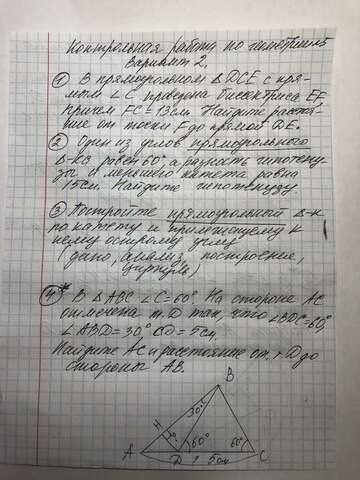 Контрольная работа по геометрии
Вариант 2.
① В прямоугольном ΔDCE с пря-
мым ∠C проведена биссектриса EF,
причем FC=13см. Найдите расстоя-
ние от точки F до прямой DE.
② Один из углов прямоугольного
Δ-ка равен 60°, а разность гипотену-
зы и меньшего катета равна
15см. Найдите гипотенузу.
③ Постройте прямоугольный Δ-к
по катету и прилежащему к
нему острому углу
(дано, анализ, построение,
циркуль)
④* В ΔABC ∠C=60°. На стороне AC
отмечена т. D так, что ∠BDC=60°,
∠ABD=30° CD=5см.
Найдите AC и расстояние от т. D до
стороны AB.
B
30°
H
?
60°
60°
A
D
?
5см
C